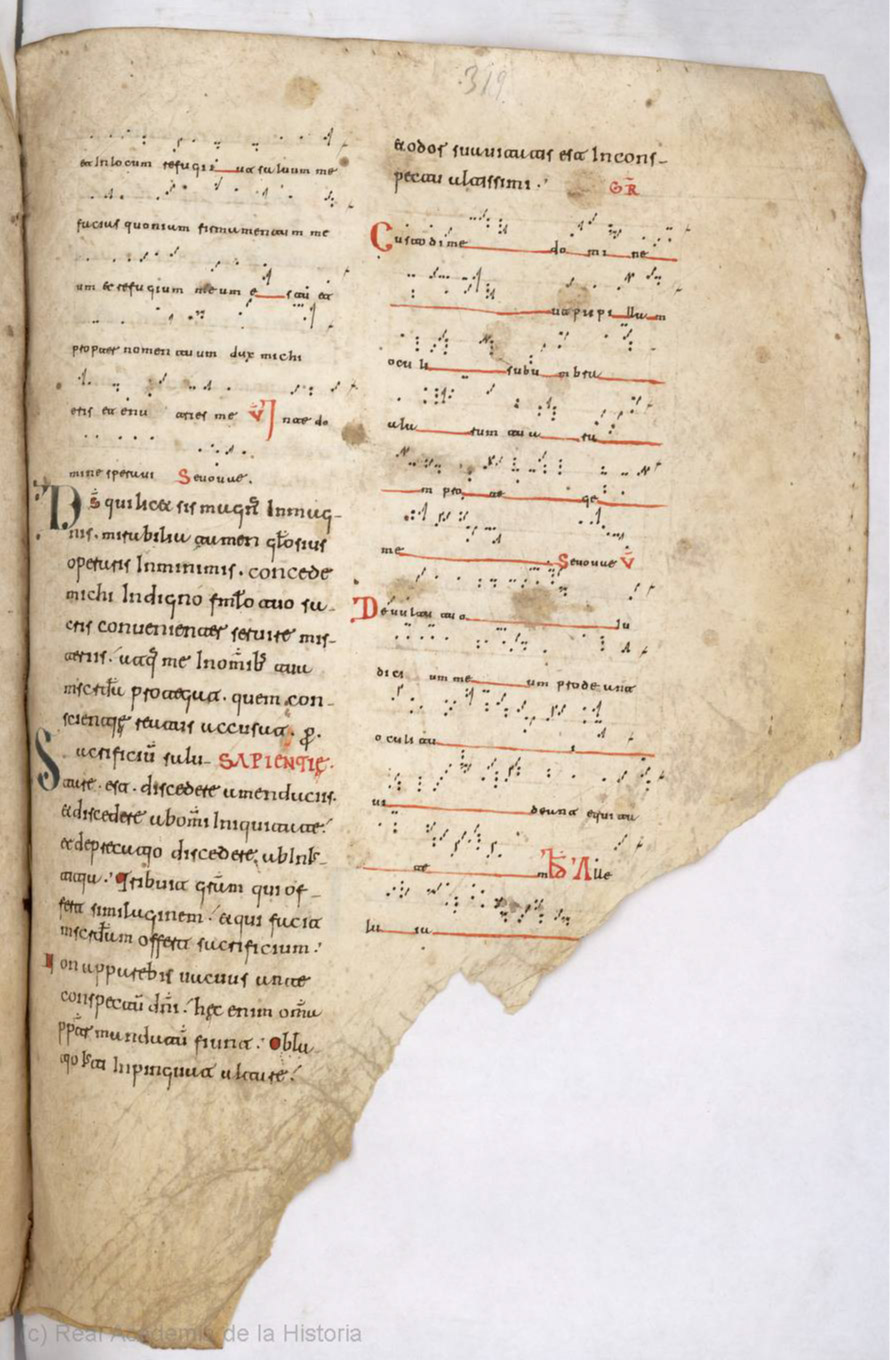 319
et in locum refugii ut saluum me
facias quoniam firmamentum me
um et refugium meum es tu et
propter nomen tuum dux michi
eris et enu tries me V̄ In te do
mine speraui Seuouae.
Ds̄ qui licet sis magn̄s In mag-
nis. mirabilia tamen gl̄osius
operaris In minimis. concede
michi Indigno fml̄o tuo sa-
cris conuenienter seruire mis-
teriis.
miscd̄ia protegat. quem con-
scientię reatus accusat. ꝑ.
Sacrificiū salu- SAPIENTIĘ.
tare. est. discedere a mendaciis.
et discedere ab om̄i Iniquitate.
et deprecatio discedere, ab Inius-
titia. Retribuit gr̄am qui of-
fert similaginem. et qui facit
miscd̄iam offert sacrificium.
Non apparebis uacuus ante
conspectū dn̄i. hęc enim om̄ia
ꝓpt̄ mandatū fiunt. Obla
tio Iusti Inpinguat altare.
et odor suauitatis est In cons-
pectu altissimi. GR̄
Custodi me do mi ne
ut pupi lla m
oculi sub u mbra
ala rum tua ru
m pro te ge
me Seuouae V̄
De uultu tuo iu
dici um me um prode at
oculi tu
ui deant equita
te m Alle
lu ia
(c) Real Academia de la Historia